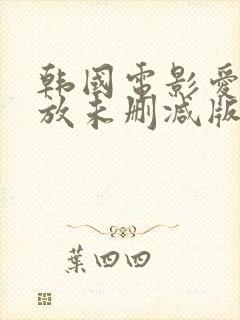 韩國電影愛
放未删减版
葉四四